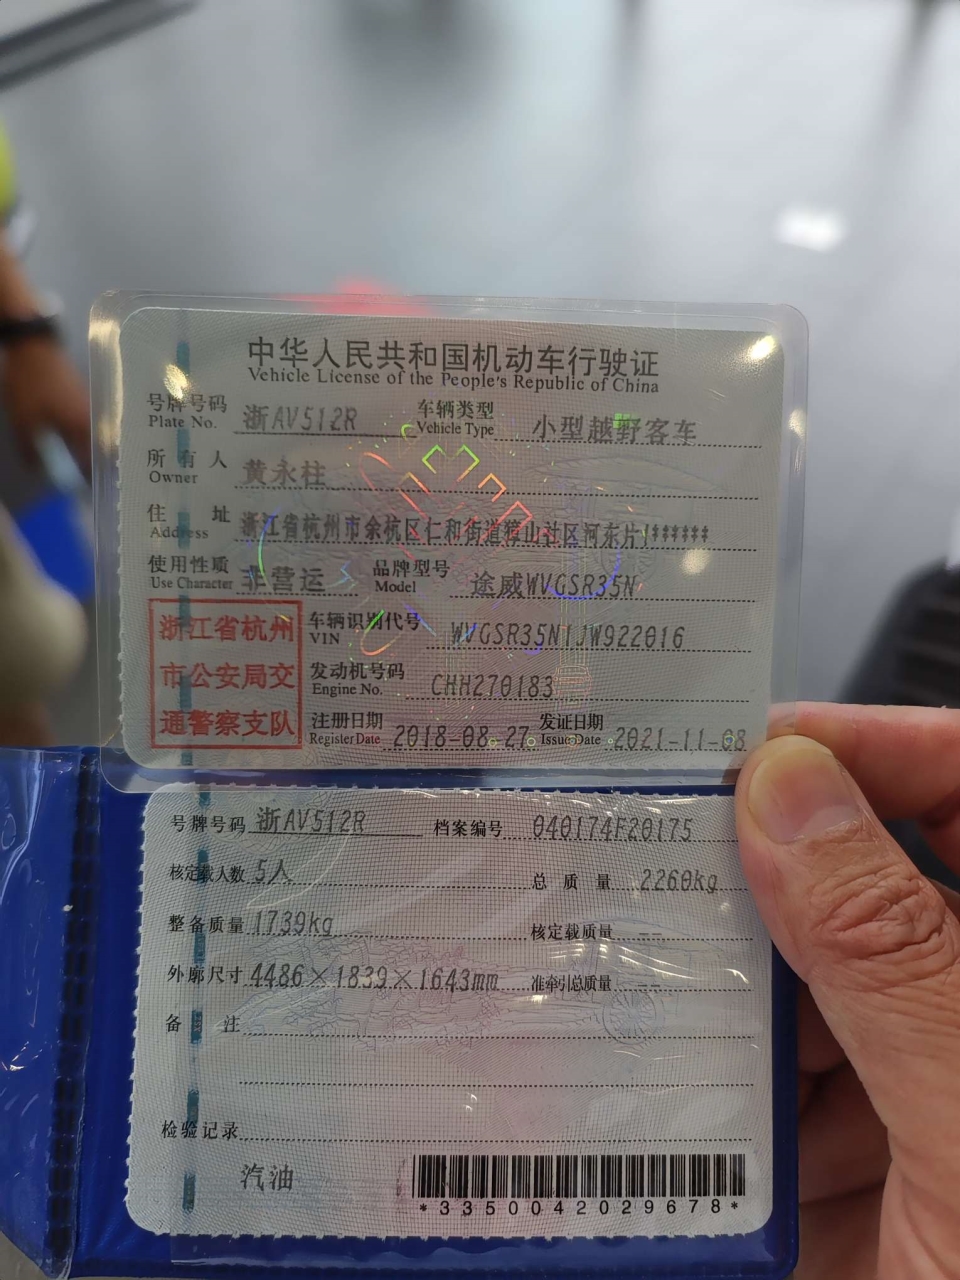 中华人民共和国机动车行驶证
Vehicle License of the People's Republic of China
号牌号码 浙AV512R 车辆类型 小型越野客车
Plate No. Vehicle Type
所有人 黄永柱
Owner
住址 浙江省杭州市余杭区仁和街道獐山社区河东片1******
Address
使用性质 非营运 品牌型号 途威WVGSR35N
Use Character Model
浙江省杭州
市公安局交
通警察支队
车辆识别代号 WVGSR35N1JW922016
VIN
发动机号码 CHH270183
Engine No.
注册日期 2018-08-27 发证日期 2021-11-08
Register Date Issue Date
号牌号码 浙AV512R 档案编号 040174F20175
核定载人数 5人 总质量 2260kg
整备质量 1739kg 核定载质量 --
外廓尺寸 4486×1839×1643mm 准牵引总质量 --
备注
检验记录
汽油
*3350042029678*